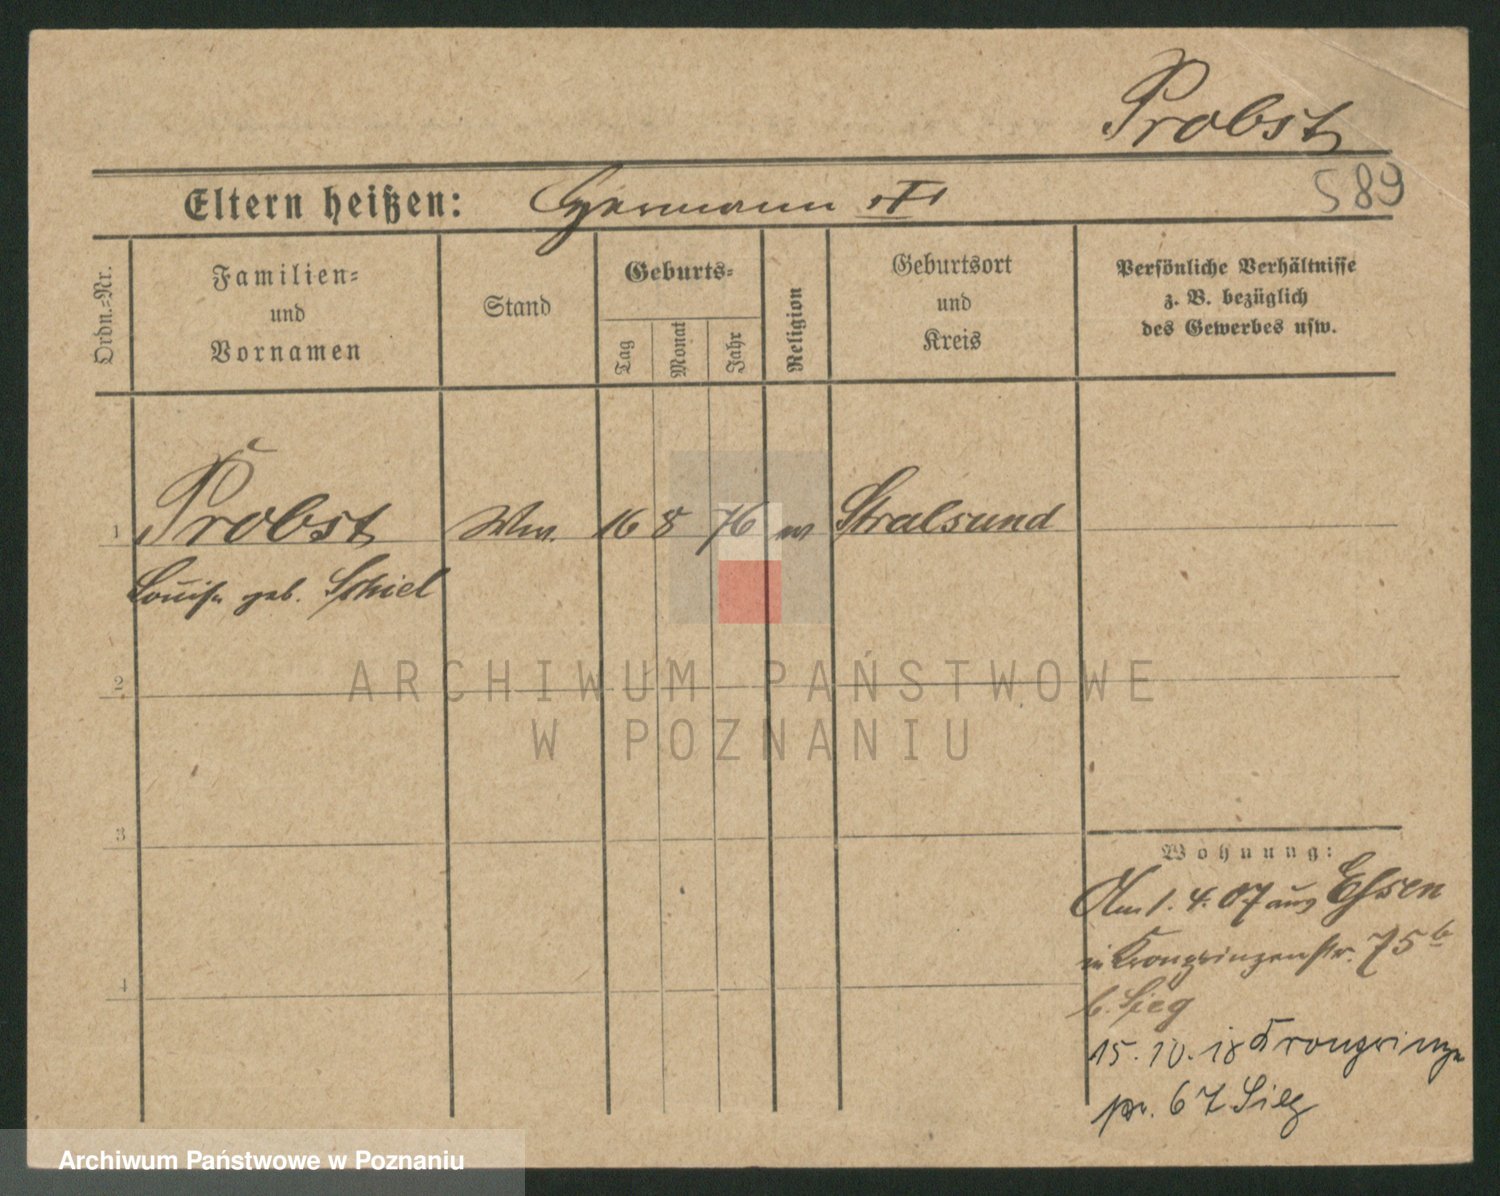 Probst
589
Eltern heißen: Hermann
Ordn.=Nr.
Familien= und Vornamen
Stand
Geburts=
Tag
Monat
Jahr
Religion
Geburtsort und Kreis
Persönliche Verhältnisse
z. B. bezüglich
des Gewerbes usw.
1 Probst Ww. 16 8 76 Stralsund
Louise geb. Schiel
2
3
4
Wohnung:
Am 1. 4. 07 aus Essen
in Kronprinzenstr. 75 b
b. Sieg
15. 10. 18 Kronprinzen
67 Sieg
ARCHIWUM PAŃSTWOWE
W POZNANIU
Archiwum Państwowe w Poznaniu